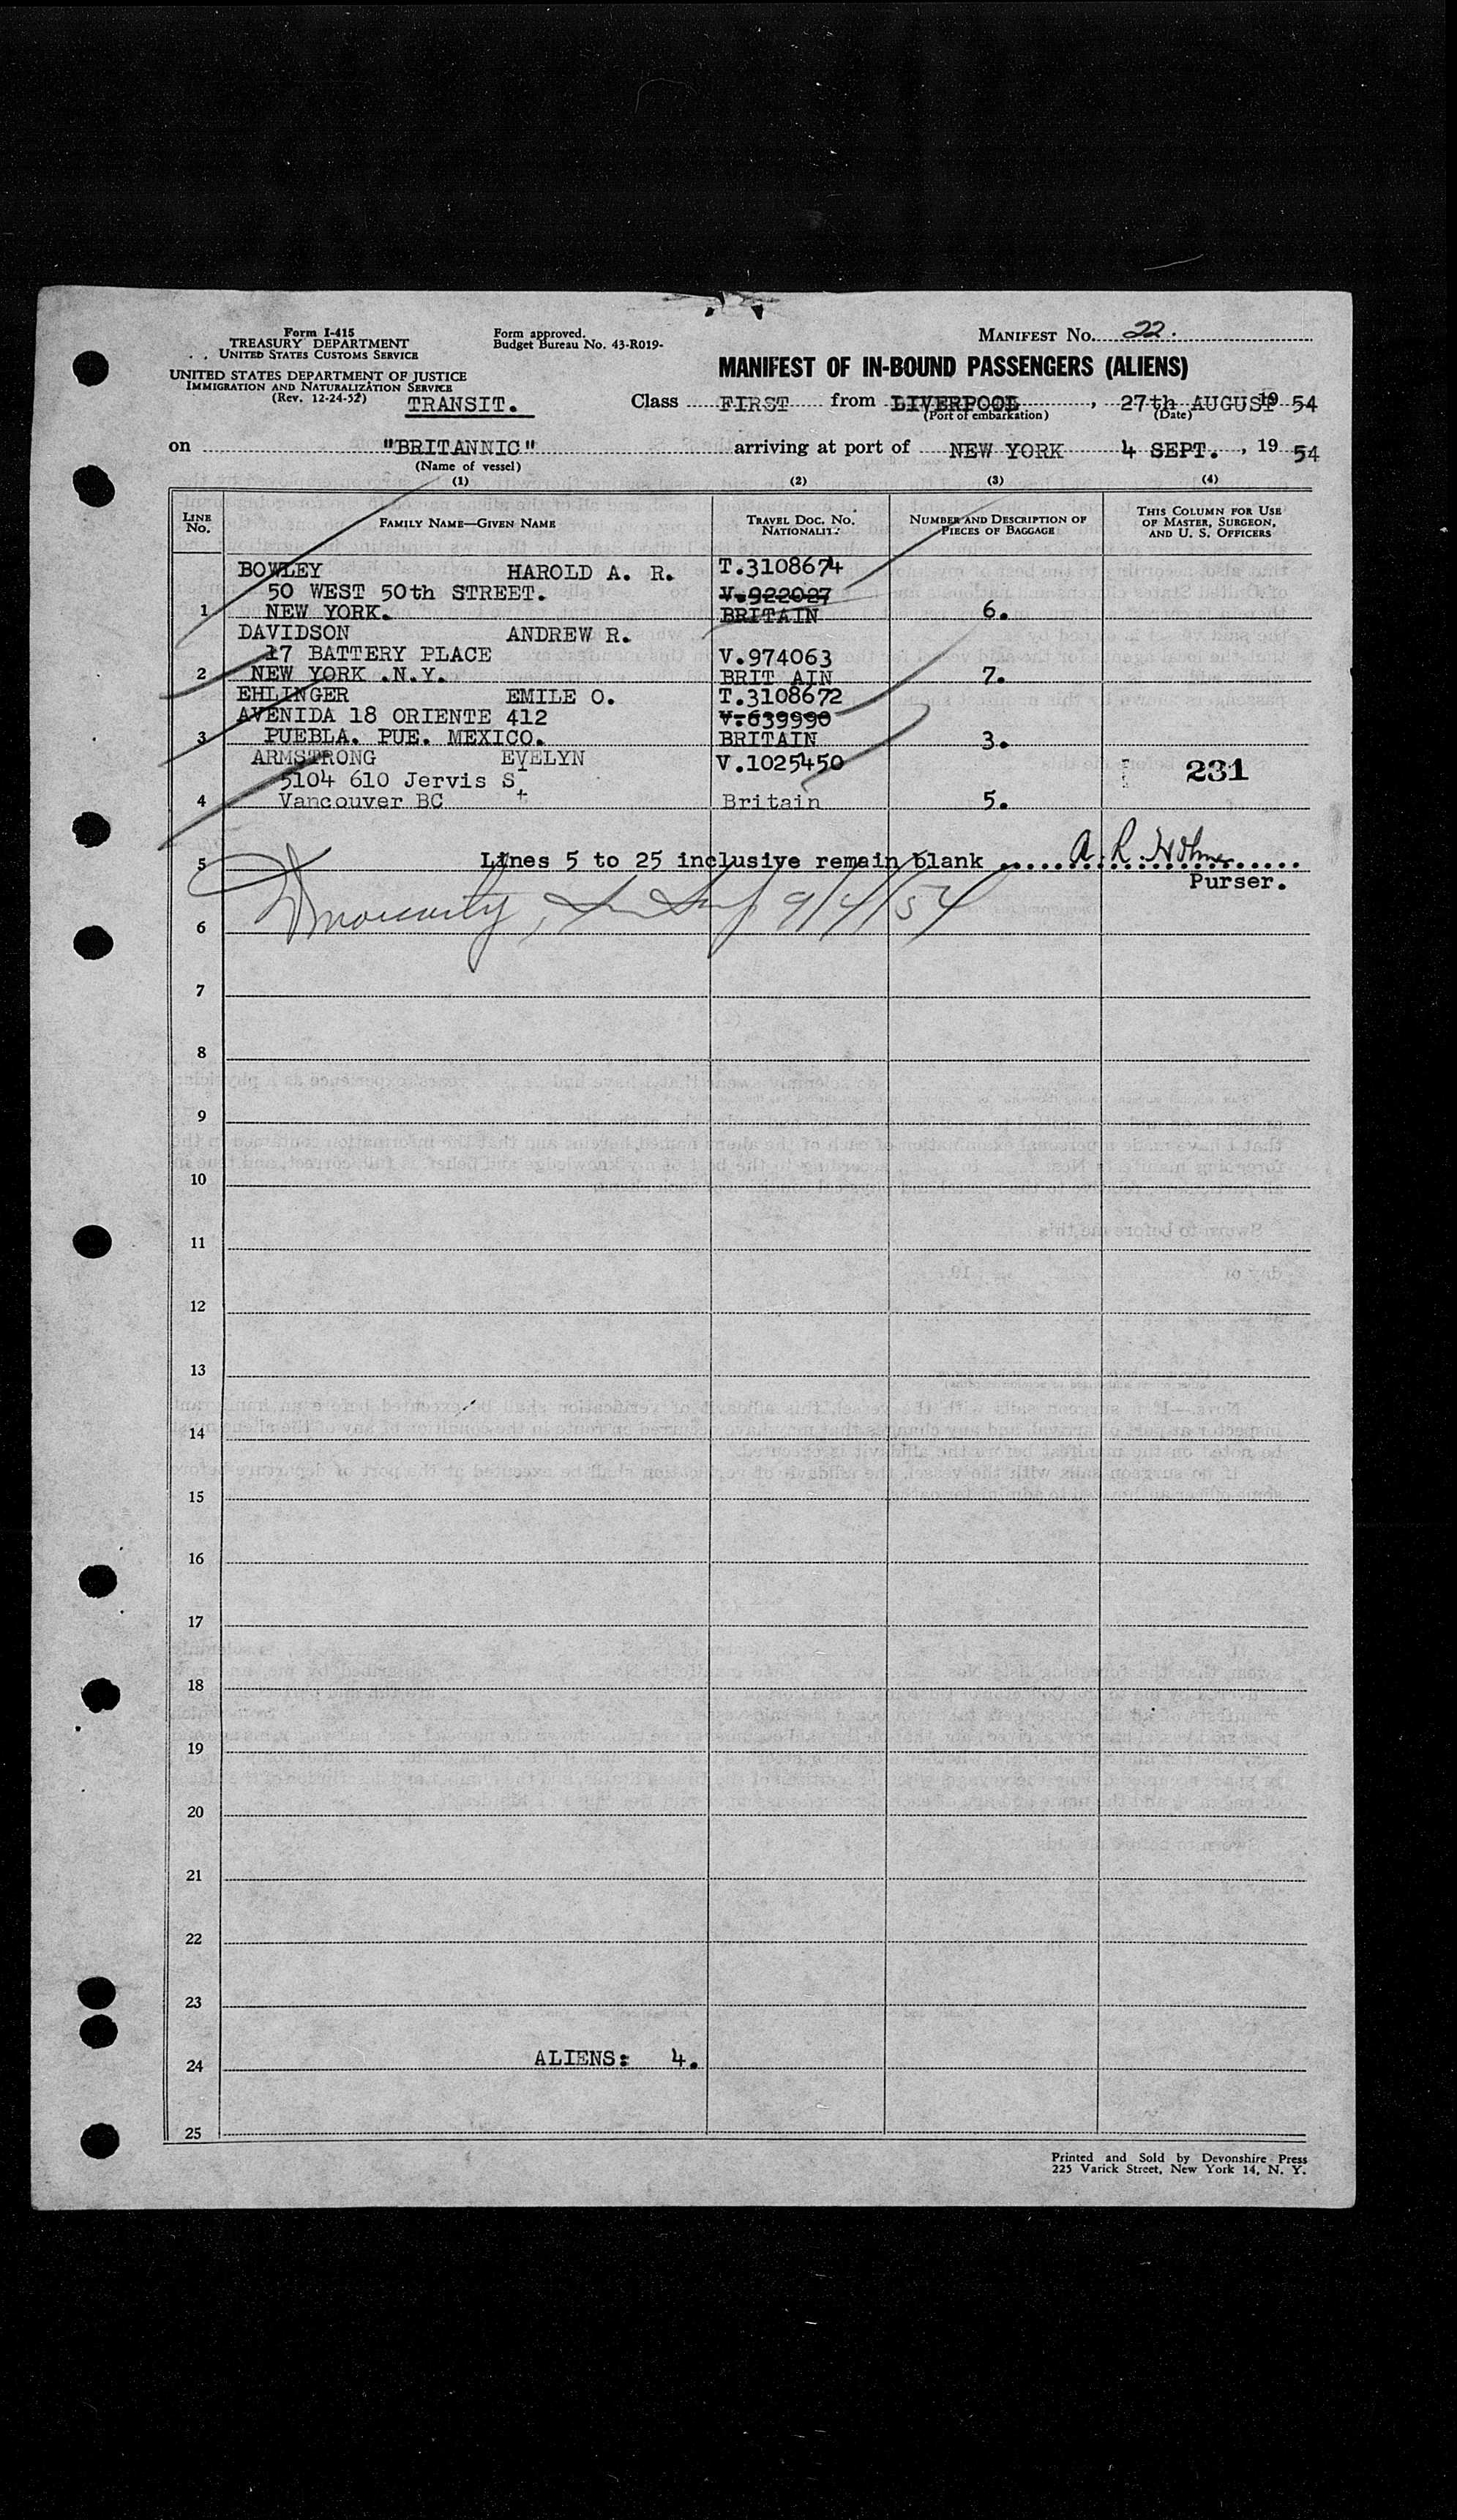 Form I-415
TREASURY DEPARTMENT
UNITED STATES CUSTOMS SERVICE
UNITED STATES DEPARTMENT OF JUSTICE
IMMIGRATION AND NATURALIZATION SERVICE
(Rev. 12-24-52)
TRANSIT.
Form approved.
Budget Bureau No. 43-R019-
MANIFEST No. 22.
MANIFEST OF IN-BOUND PASSENGERS (ALIENS)
Class FIRST from LIVERPOOL, 27th AUGUST 19 54
(Port of embarkation) (Date)
on "BRITANNIC" arriving at port of NEW YORK 4 SEPT., 19 54
(Name of vessel)
(1) (2) (3) (4)
LINE No.
FAMILY NAME—GIVEN NAME
TRAVEL DOC. NO. NATIONALITY
NUMBER AND DESCRIPTION OF PIECES OF BAGGAGE
THIS COLUMN FOR USE OF MASTER, SURGEON, AND U. S. OFFICERS
BOWLEY HAROLD A. R. T.3108674
50 WEST 50th STREET. V.922027
1 NEW YORK. BRITAIN 6.
DAVIDSON ANDREW R.
17 BATTERY PLACE V.974063
2 NEW YORK .N.Y. BRIT AIN 7.
EHLINGER EMILE O. T.3108672
AVENIDA 18 ORIENTE 412 V.639990
3 PUEBLA. PUE. MEXICO. BRITAIN 3.
ARMSTRONG EVELYN V.1025450
5104 610 Jervis St 231
4 Vancouver BC Britain 5.
5 Lines 5 to 25 inclusive remain blank A. R.
Purser.
6 9/4/54
7
8
9
10
11
12
13
14
15
16
17
18
19
20
21
22
23
24 ALIENS: 4.
25
Printed and Sold by Devonshire Press
225 Varick Street, New York 14, N. Y.